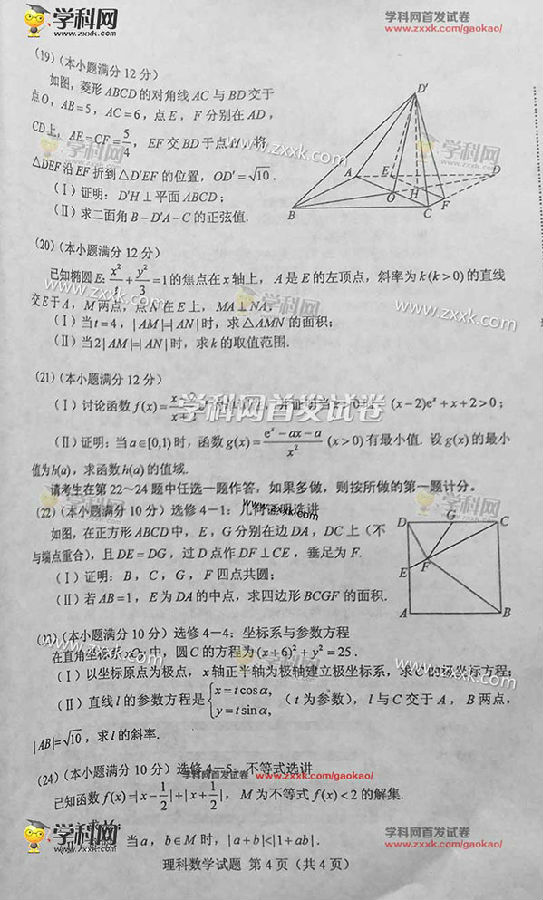 学科网
www.zxxk.com
学科网首发试卷
www.zxxk.com/gaokao/
(19)(本小题满分12分)
如图,菱形ABCD的对角线AC与BD交于
点O,AB=5,AC=6,点E,F分别在AD,
CD上,AE=CF=5/4,EF交BD于点H,将
△DEF沿EF折到△D'EF的位置,OD'=√10.
(Ⅰ)证明:D'H⊥平面ABCD;
(Ⅱ)求二面角B-D'A-C的正弦值.
D'
A
E
D
O
H
F
B
C
学科网
www.zxxk.com
(20)(本小题满分12分)
已知椭圆E:x²/t+y²/3=1的焦点在x轴上,A是E的左顶点,斜率为k(k>0)的直线
交E于A,M两点,点N在E上,MA⊥NA.
(Ⅰ)当t=4,|AM|=|AN|时,求△AMN的面积;
(Ⅱ)当2|AM|=|AN|时,求k的取值范围.
学科网
www.zxxk.com
(21)(本小题满分12分)
(Ⅰ)讨论函数f(x)= (x-2)eˣ+x+2>0;
学科网首发试卷
(Ⅱ)证明:当a∈[0,1)时,函数g(x)=(eˣ-ax-a)/x² (x>0)有最小值.设g(x)的最小
值为h(a),求函数h(a)的值域.
请考生在第22~24题中任选一题作答,如果多做,则按所做的第一题计分。
(22)(本小题满分10分)选修4-1:几何证明选讲
如图,在正方形ABCD中,E,G分别在边DA,DC上(不
与端点重合),且DE=DG,过D点作DF⊥CE,垂足为F.
(Ⅰ)证明:B,C,G,F四点共圆;
(Ⅱ)若AB=1,E为DA的中点,求四边形BCGF的面积.
D
G
C
E
F
A
B
(23)(本小题满分10分)选修4-4:坐标系与参数方程
在直角坐标系xOy中,圆C的方程为(x+6)²+y²=25.
(Ⅰ)以坐标原点为极点,x轴正半轴为极轴建立极坐标系,求C的极坐标方程;
(Ⅱ)直线l的参数方程是{x=tcosα, y=tsinα, (t为参数),l与C交于A,B两点,
|AB|=√10,求l的斜率.
(24)(本小题满分10分)选修4-5:不等式选讲
学科网首发试卷
www.zxxk.com/gaokao/
已知函数f(x)=|x-1/2|+|x+1/2|,M为不等式f(x)<2的解集.
当a,b∈M时,|a+b|<|1+ab|.
理科数学试题 第4页(共4页)
学科网
www.zxxk.com
学科网首发试卷
www.zxxk.com/gaokao/